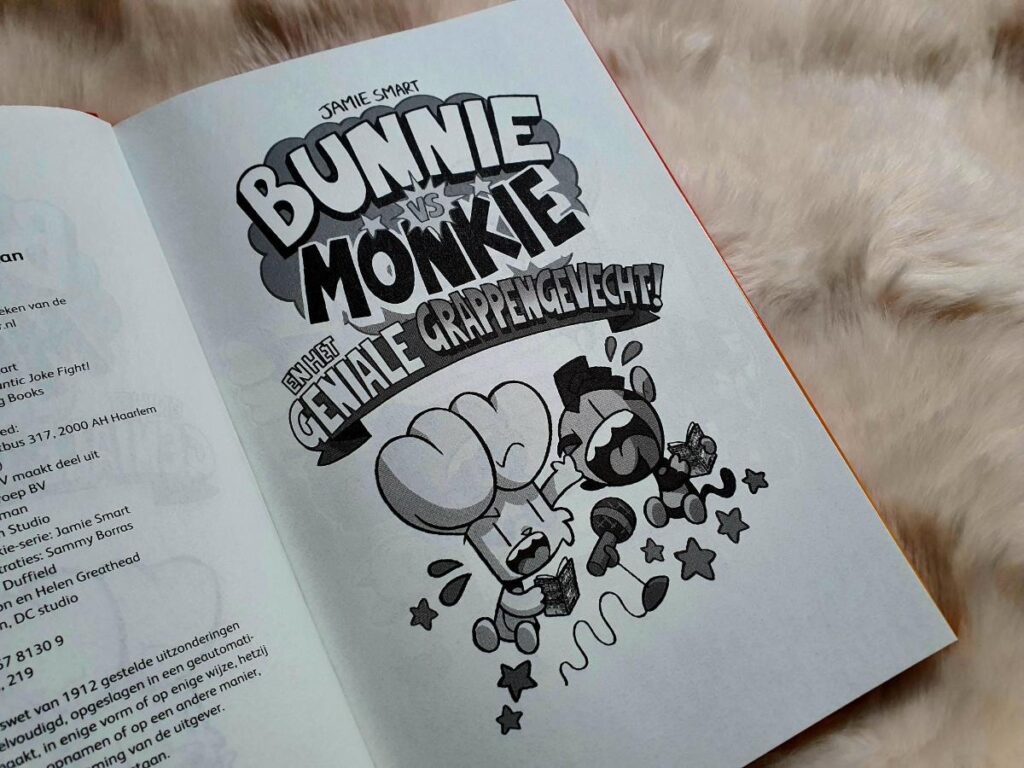 an
eken van de
r.nl
art
antic Joke Fight!
g Books
ed:
tbus 317, 2000 AH Haarlem
0
V maakt deel uit
roep BV
man
n Studio
kie-serie: Jamie Smart
straties: Sammy Borras
Duffield
on en Helen Greathead
n, DC studio
57 8130 9
, 219
swet van 1912 gestelde uitzonderingen
elvoudigd, opgeslagen in een geautomati-
aakt, in enige vorm of op enige wijze, hetzij
opnamen of op een andere manier,
ming van de uitgever.
staan.
JAMIE SMART
BUNNIE
VS
MONKIE
EN HET
GENIALE GRAPPENGEVECHT!